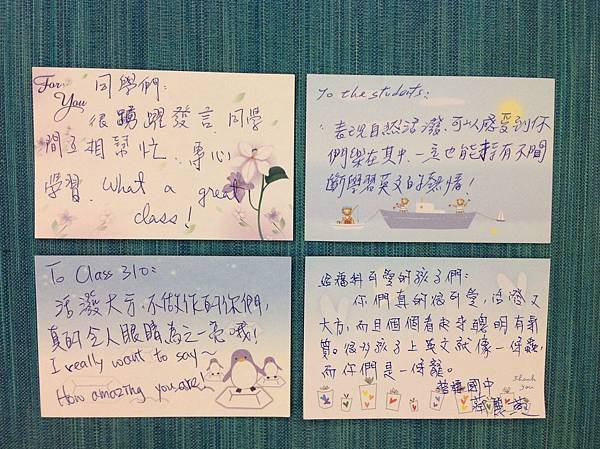 For You
同學們:
很踴躍發言、同學
間互相幫忙、專心
學習、What a great
class!
To the students:
表現自然活潑、可以感受到你
們樂在其中、一定也能持有不間
斷學習英文的熱情!
To Class 310:
活潑大方、不做作的你們,
真的令人眼睛為之一亮哦!
I really want to say~
How amazing you are~
可愛的孩子們:
你們真的很可愛,活潑又
大方,而且個個看起來聰明有氣
質。很多孩子上英文就像一條蟲,
而你們是一條龍。
國中
thank you